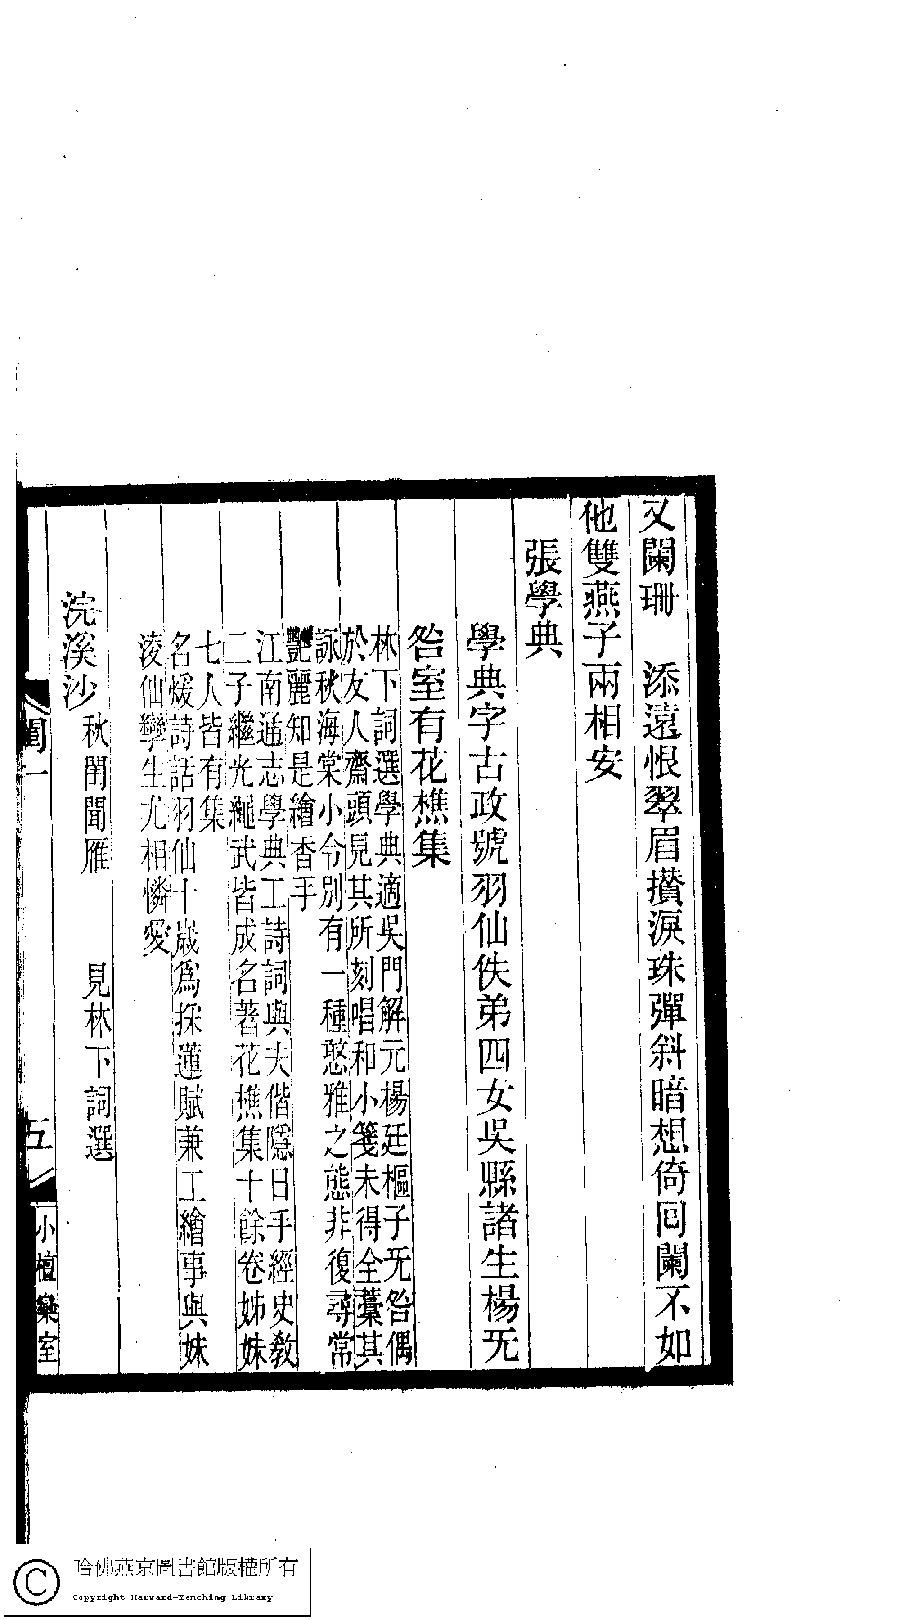 又闌珊　添遠恨翠眉攢淚珠彈斜暗想倚回闌不如
他雙燕子兩相安
張學典
學典字古政號羽仙佚弟四女吳縣諸生楊旡
咎室有花樵集
林下詞選學典適吳門解元楊廷樞子旡咎偶
於友人齋頭見其所刻唱和小箋未得全藁其
詠秋海棠小令別有一種憨雅之態非復尋常
艷麗知是繪香手
江南通志學典工詩詞與夫偕隱日手經史教
二子繼光繩武皆成名著花樵集十餘卷姊妹
七人皆有集
名媛詩話羽仙十歲爲採蓮賦兼工繪事與妹
淩仙孿生尤相憐愛
浣溪沙　秋閨聞雁　見林下詞選
閨一
五
小檀欒室
哈佛燕京圖書館版權所有
Copyright Harvard-Yenching Library